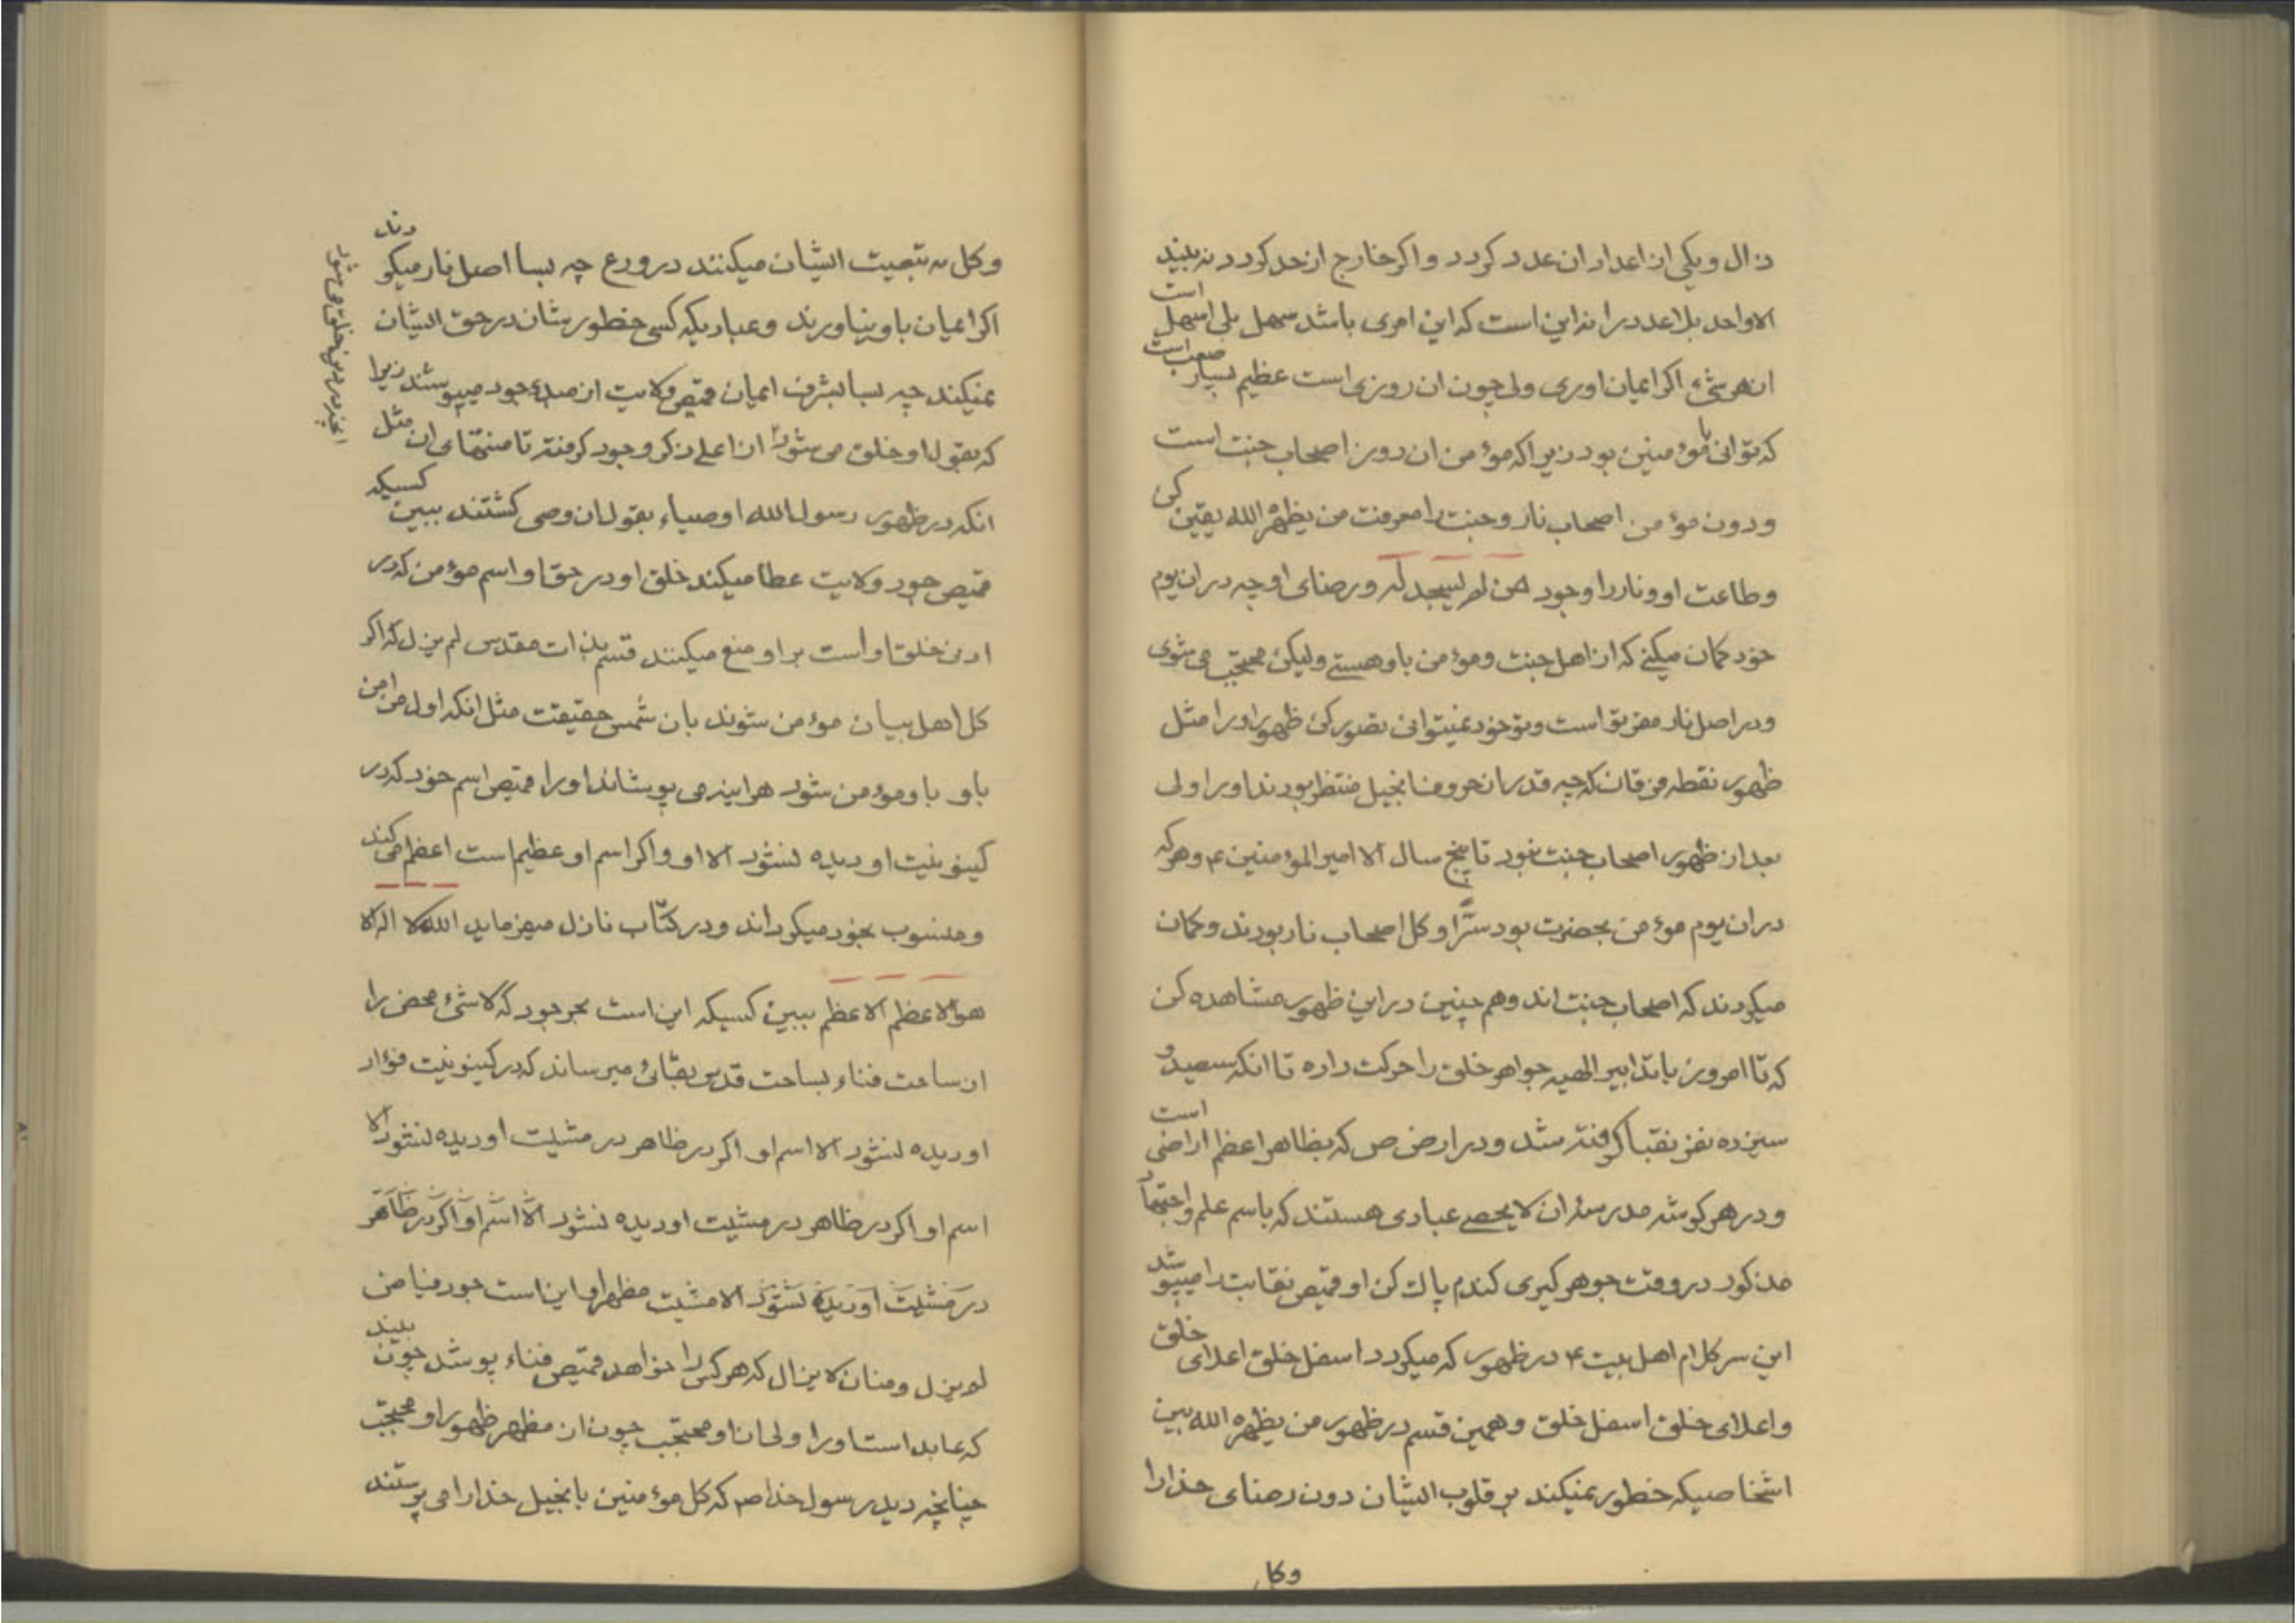 ذال و یکی از اعداد ان عدد کردد و اکر خارج از حد کردد نه بیند
الا واحد بلا عدد را نه این است که این امری باشد سهل بلی اسهل است
از هر شیء اکر ایمان اوری ولی چون ان روزی است عظیم بسیار صعب است
که توانی با مؤمنین بود زیرا که مؤمن ان روز اصحاب جنت است
و دون مؤمن اصحاب نار و جنت را معرفت من یظهره الله یقین کن
و طاعت او و نار را وجود من لم یسجد له و رضای او چه در ان یوم
خود کمان میکنی که از اهل جنت و مؤمن باو هستی ولیکن محتجب می شوی
و در اصل نار مقر تو است و تو خود نمیتوانی تصور کن ظهور او را مثل
ظهور نقطه فرقان که چه قدر از حروف انجیل منتظر بودند او را ولی
بعد از ظهور اصحاب جنت نبود تا پنج سال الا امیر المؤمنین ع و هر که
در ان یوم مؤمن بحضرت بود سرّا و کل اصحاب نار بودند و کمان
میکردند که اصحاب جنت اند و هم چنین در این ظهور مشاهده کن
که تا امروز بتدابیر الهیه جواهر خلق را حرکت داده تا انکه سیصد و
سیزده نفر نقبا کرفته شد و در ارض ص که بظاهر اعظم اراضی است
و در هر کوشه مدرسهٔ ان لا یحصی عبادی هستند که باسم علم و اجتهاد
مذکور در وقت جوهر کیری کندم پاک کن او قمیص نقابت را میپوشد
این سر کلام اهل بیت ع در ظهور که میکردد اسفل خلق اعلای خلق
و اعلای خلق اسفل خلق و همین قسم در ظهور من یظهره الله بین
اشخاصیکه خطور نمیکند بر قلوب ایشان دون رضای خدا را
وکل
وکل به تبعیت ایشان میکنند در ورع چه بسا اصل نار میکردند
اکر ایمان باو نیاورند و عبادیکه کسی خطور شان در حق ایشان
نمیکند چه بسا بشرف ایمان قمیص ولایت از مبدء جود میپوشند زیرا
که بقول او خلق می شود از اعلی ذکر وجود کرفته تا منتهای ان مثل
انچه در دین خلق می شود
انکه در ظهور رسول الله اوصیاء بقول ان وصی کشتند ببین کسیکه
قمیص جود ولایت عطا میکند خلق او در حق او اسم مؤمن که در
ادنی خلق او است بر او منع میکنند قسم بذات مقدس لم یزل که اکر
کل اهل بیان مؤمن شوند بان شمس حقیقت مثل انکه اول من امن
باو باو مؤمن شود هر اینه می پوشاند او را قمیص اسم خود که در
کینونیت او دیده نشود الا او و اکر اسم او عظیم است اعظم می کند
و منسوب بخود میکرداند و در کتاب نازل میفرماید الله لا اله الا
هو الاعظم الاعظم ببین کسیکه این است بحر جود که لاشیء محض را
از ساحت فناء بساحت قدس بقائی میرساند که در کینونیت فؤاد
او دیده نشود الا اسم او اکر در ظاهر در مشیت او دیده نشود الا
اسم او اکر در ظاهر در مشیت او دیده نشود الا اسم او اکر در ظاهر
در مشیت او دیده نشود الا مشیت مظهر او این است جود فیاض
لم یزل و منان لا یزال که هر کس را خواهد قمیص فناء پوشد چون بیند
که عابد است او را ولی از او محتجب چون از مظهر ظهور او محتجب
چنانچه دید رسول خدا ص که کل مؤمنین بانجیل خدا را می پرستند